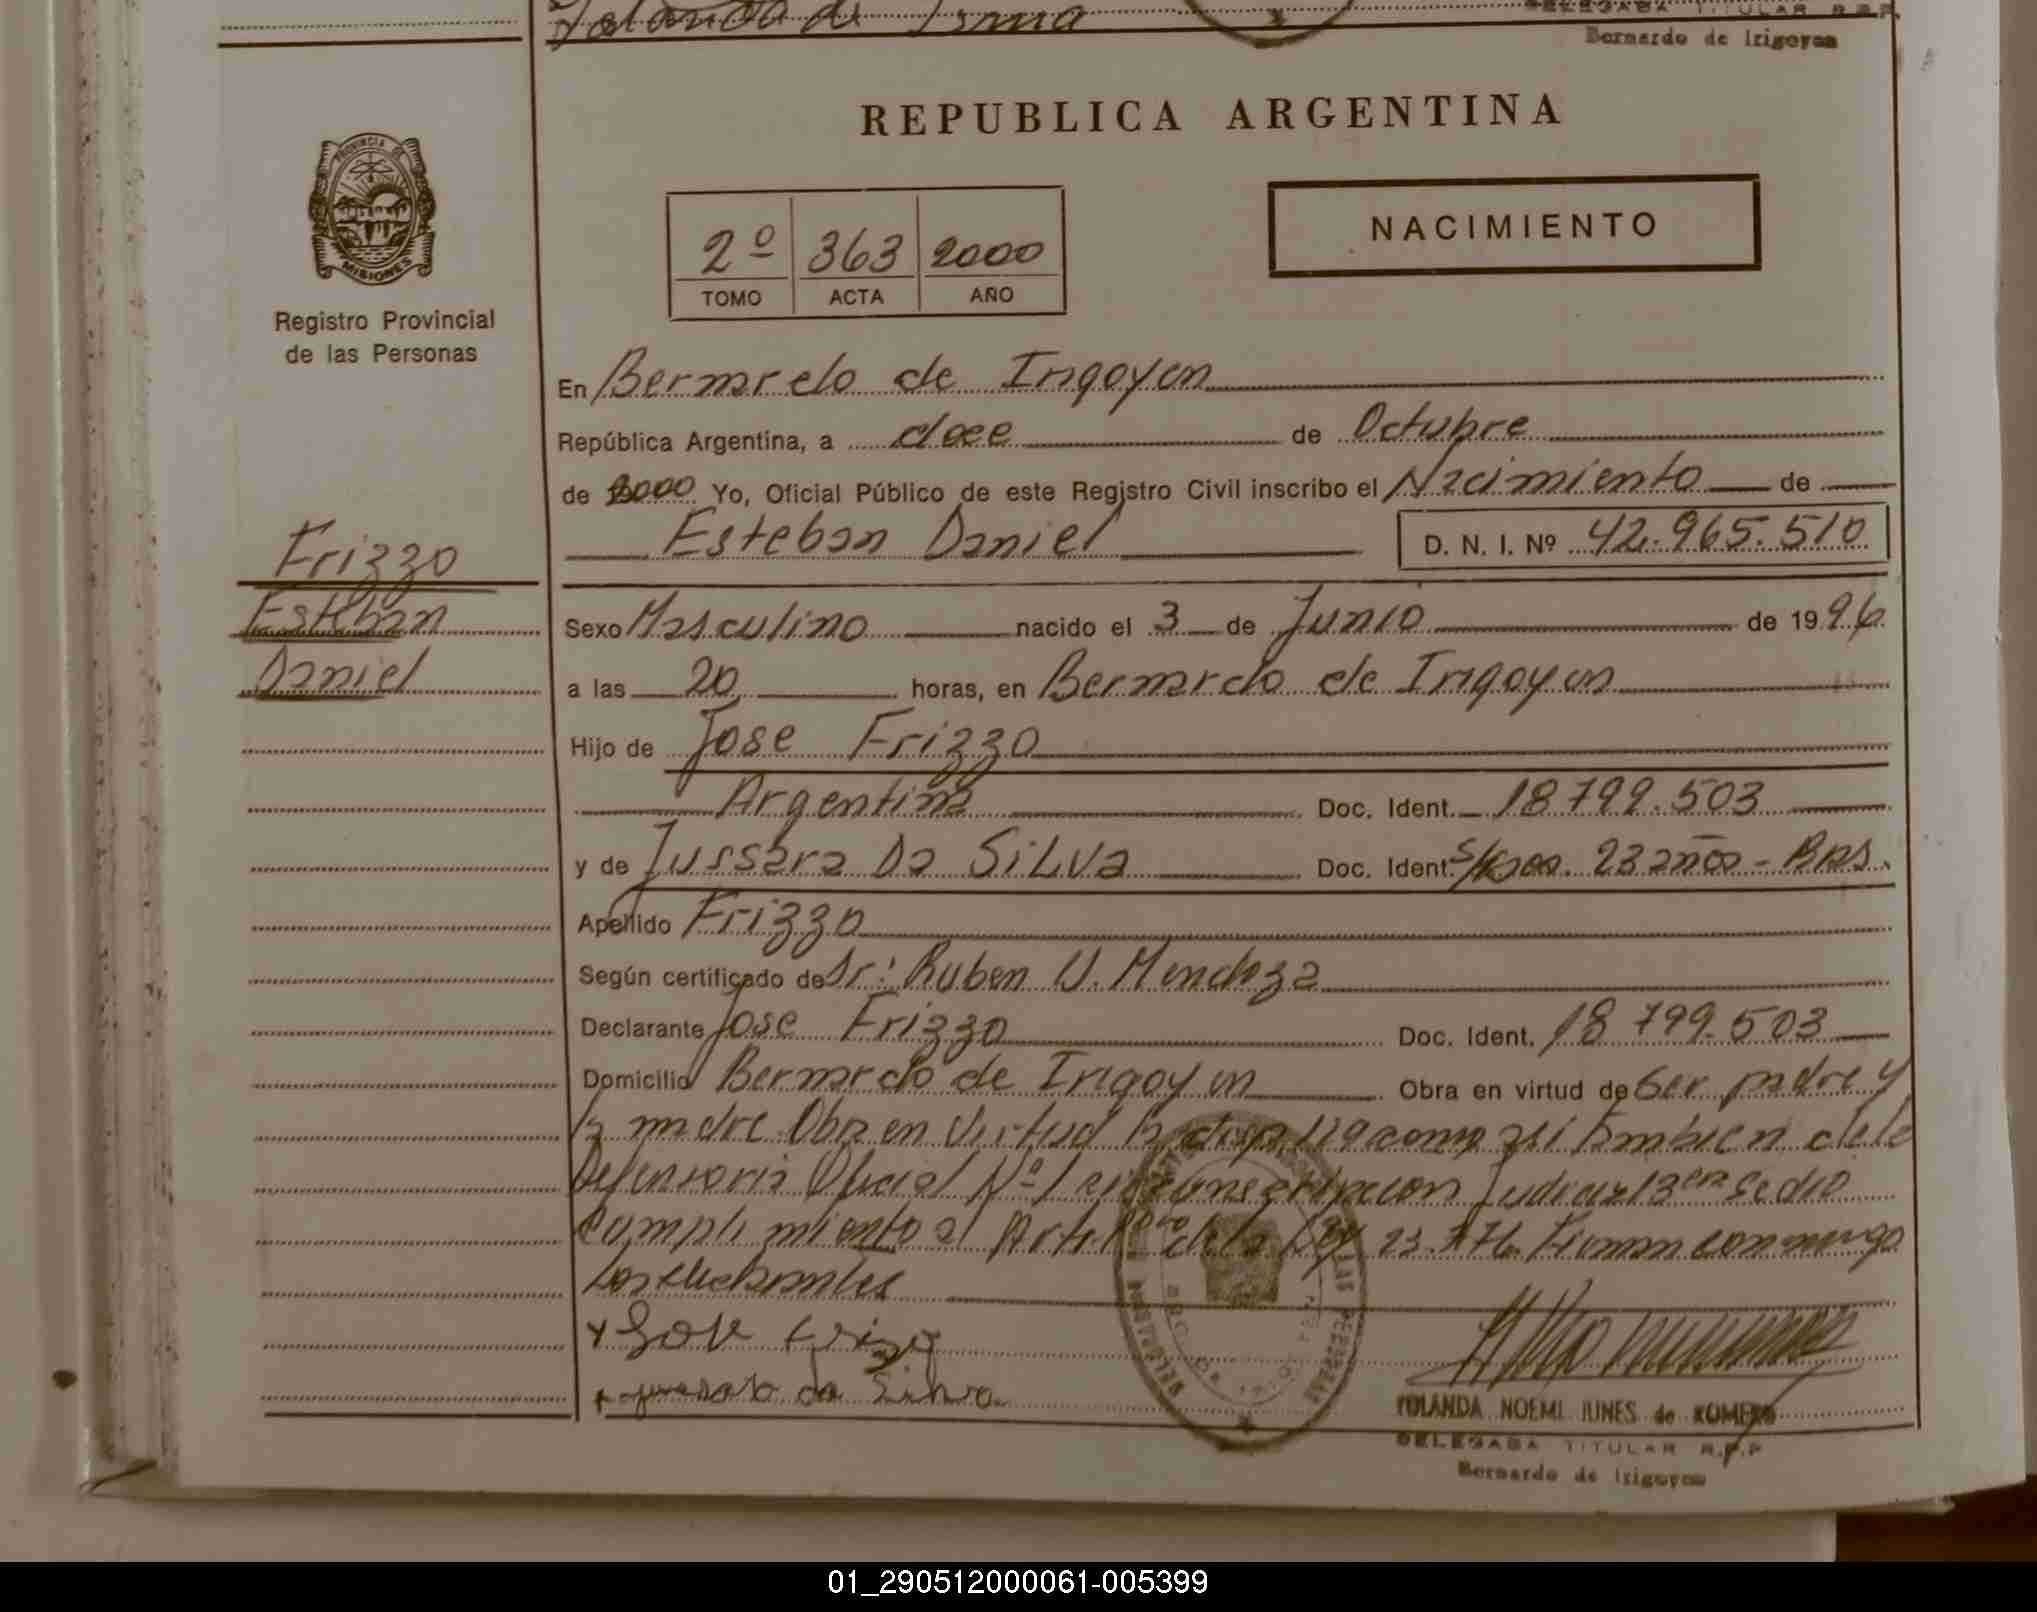 Bernardo de Irigoyen
REPUBLICA ARGENTINA
PROVINCIA DE
MISIONES
Registro Provincial
de las Personas
NACIMIENTO
2º 363 2000
TOMO ACTA AÑO
En Bernardo de Irigoyen
República Argentina, a doce de Octubre
de 2000 Yo, Oficial Público de este Registro Civil inscribo el Nacimiento de
Esteban Daniel D. N. I. Nº 42.965.510
Frizzo
Esteban
Daniel
Sexo Masculino nacido el 3 de Junio de 1996
a las 20 horas, en Bernardo de Irigoyen
Hijo de Jose Frizzo
Argentina Doc. Ident. 18.799.503
y de Jussara Da Silva Doc. Ident. 23 años - Bras.
Apellido Frizzo
Según certificado de Dr: Ruben W. Mendoza
Declarante Jose Frizzo Doc. Ident. 18.799.503
Domicilio Bernardo de Irigoyen Obra en virtud de Ser padre y
la madre Obra en Virtud la como asi tambien de la
Defensoria Oficial Nº 1 circunscripcion Judicial 3era Se dio
cumplimiento al de la Ley Firman conmigo
los declarantes
da Silva
YOLANDA NOEMI JUNES de ROMERO
DELEGADA TITULAR R.P.P
Bernardo de Irigoyen
01_290512000061-005399